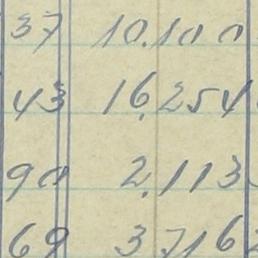 37 10,100
43 16,254
90 2,113
69 3,716